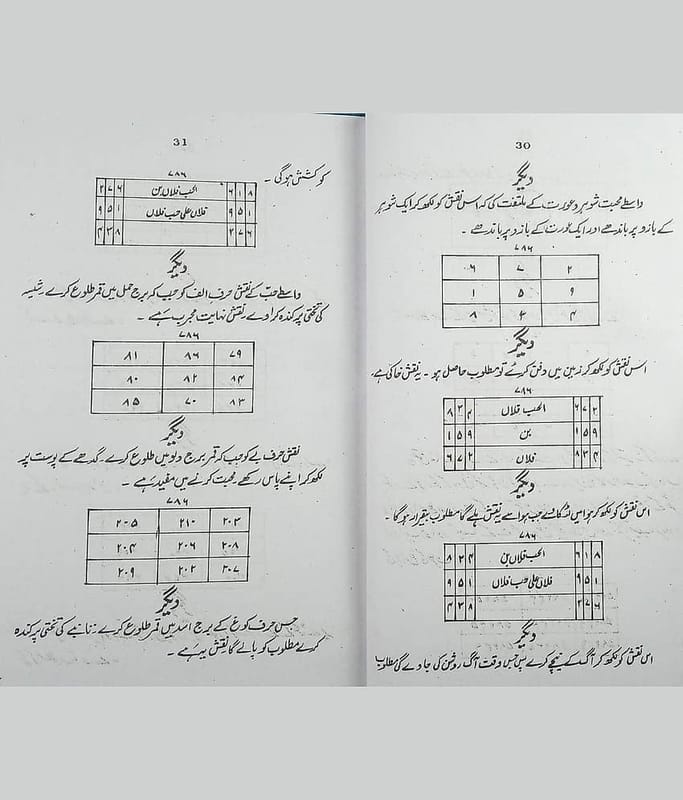 30
دیگر
واسطے محبت شوہر و عورت کے ملتفت کی کہ اس نقش کو لکھ کر ایک شوہر
کے بازو پر باندھے اور ایک عورت کے بازو پر باندھے ۔
۷۸۶
۶ ۷ ۲
۱ ۵ ۹
۸ ۳ ۴
دیگر
اس نقش کو لکھ کر زمین میں دفن کرئے تو مطلوب حاصل ہو ۔ یہ نقش خاکی ہے
۷۸۶
۸ ۳ ۴ الحب فلاں ۶ ۷ ۲
۱ ۵ ۹ بن ۱ ۵ ۹
۶ ۷ ۲ فلاں ۸ ۳ ۴
دیگر
اس نقش کو لکھ کر ہوا میں لٹکائے جب ہوا سے یہ نقش ہلے گا مطلوب بیقرار ہوگا ۔
۷۸۶
۸ ۳ ۴ الحب فلاں بن ۶ ۱ ۸
۹ ۵ ۱ فلاں علی حب فلاں ۹ ۵ ۱
۴ ۳ ۸ ۲ ۷ ۶
دیگر
اس نقش کو لکھ کر آگ کے نیچے کرے پس جس وقت آگ روشن کی جاوے گی مطلوب
31
کو کشش ہوگی ۔
۷۸۶
۲ ۷ ۶ الحب فلاں بن ۶ ۱ ۸
۹ ۵ ۱ فلاں علی حب فلاں ۹ ۵ ۱
۴ ۳ ۸ ۲ ۷ ۶
دیگر
واسطے حب کے نقش حرف الف کو جب کہ برج حمل میں قمر طلوع کرے
کی تختی پر کندہ کراوے نقش نہایت مجرب ہے ۔
۷۸۶
۸۱ ۸۶ ۷۹
۸۰ ۸۲ ۸۴
۸۵ ۷۰ ۸۳
دیگر
نقش حرف بے کو جب کہ قمر برج دلو میں طلوع کرے ۔ گدھے کے پوست پر
لکھ کر اپنے پاس رکھے محبت کرنے میں مفید ہے ۔
۷۸۶
۲۰۵ ۲۱۰ ۲۰۳
۲۰۴ ۲۰۶ ۲۰۸
۲۰۹ ۲۰۲ ۲۰۷
دیگر
جس حرف کو غ کے برج اسد میں قمر طلوع کرے تانبے کی تختی پر کندہ
کرے مطلوب کو پالے گا نقش یہ ہے ۔